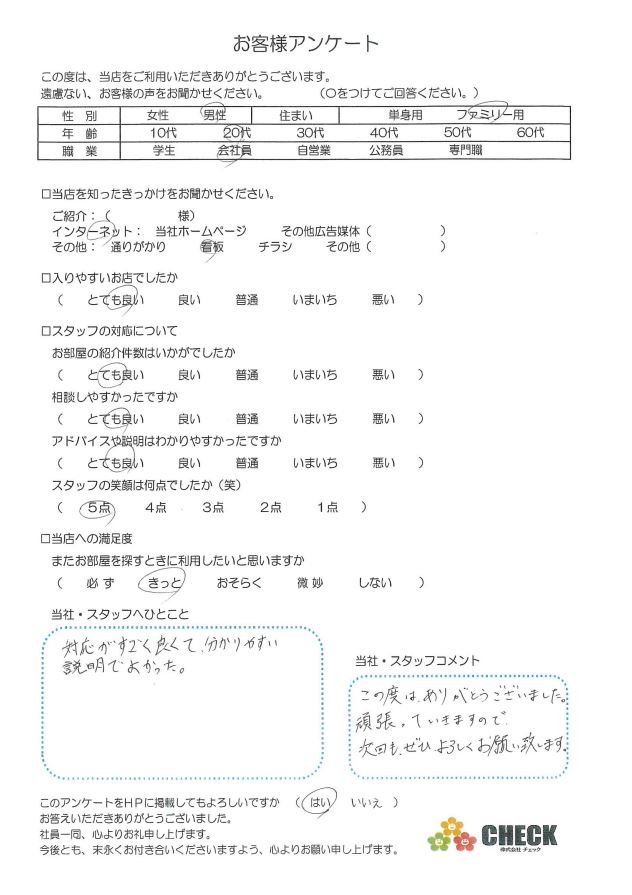 お客様アンケート
この度は、当店をご利用いただきありがとうございます。
遠慮ない、お客様の声をお聞かせください。　（○をつけてご回答ください。）
性 別　女性　男性　住まい　単身用　ファミリー用
年 齢　10代　20代　30代　40代　50代　60代
職 業　学生　会社員　自営業　公務員　専門職
□当店を知ったきっかけをお聞かせください。
ご紹介：（　　　様）
インターネット：　当社ホームページ　その他広告媒体（　　　）
その他：　通りがかり　看板　チラシ　その他（　　　）
□入りやすいお店でしたか
（　とても良い　良い　普通　いまいち　悪い　）
□スタッフの対応について
お部屋の紹介件数はいかがでしたか
（　とても良い　良い　普通　いまいち　悪い　）
相談しやすかったですか
（　とても良い　良い　普通　いまいち　悪い　）
アドバイスや説明はわかりやすかったですか
（　とても良い　良い　普通　いまいち　悪い　）
スタッフの笑顔は何点でしたか（笑）
（　5点　4点　3点　2点　1点　）
□当店への満足度
またお部屋を探すときに利用したいと思いますか
（　必ず　きっと　おそらく　微妙　しない　）
当社・スタッフへひとこと
対応がすごく良くて、分かりやすい
説明でよかった。
当社・スタッフコメント
この度は、ありがとうございました。
頑張っていきますので、
次回も、ぜひ、よろしくお願い致します。
このアンケートをHPに掲載してもよろしいですか　（　はい　いいえ　）
お答えいただきありがとうございました。
社員一同、心よりお礼申し上げます。
今後とも、末永くお付き合いくださいますよう、心よりお願い申し上げます。
CHECK
株式会社 チェック